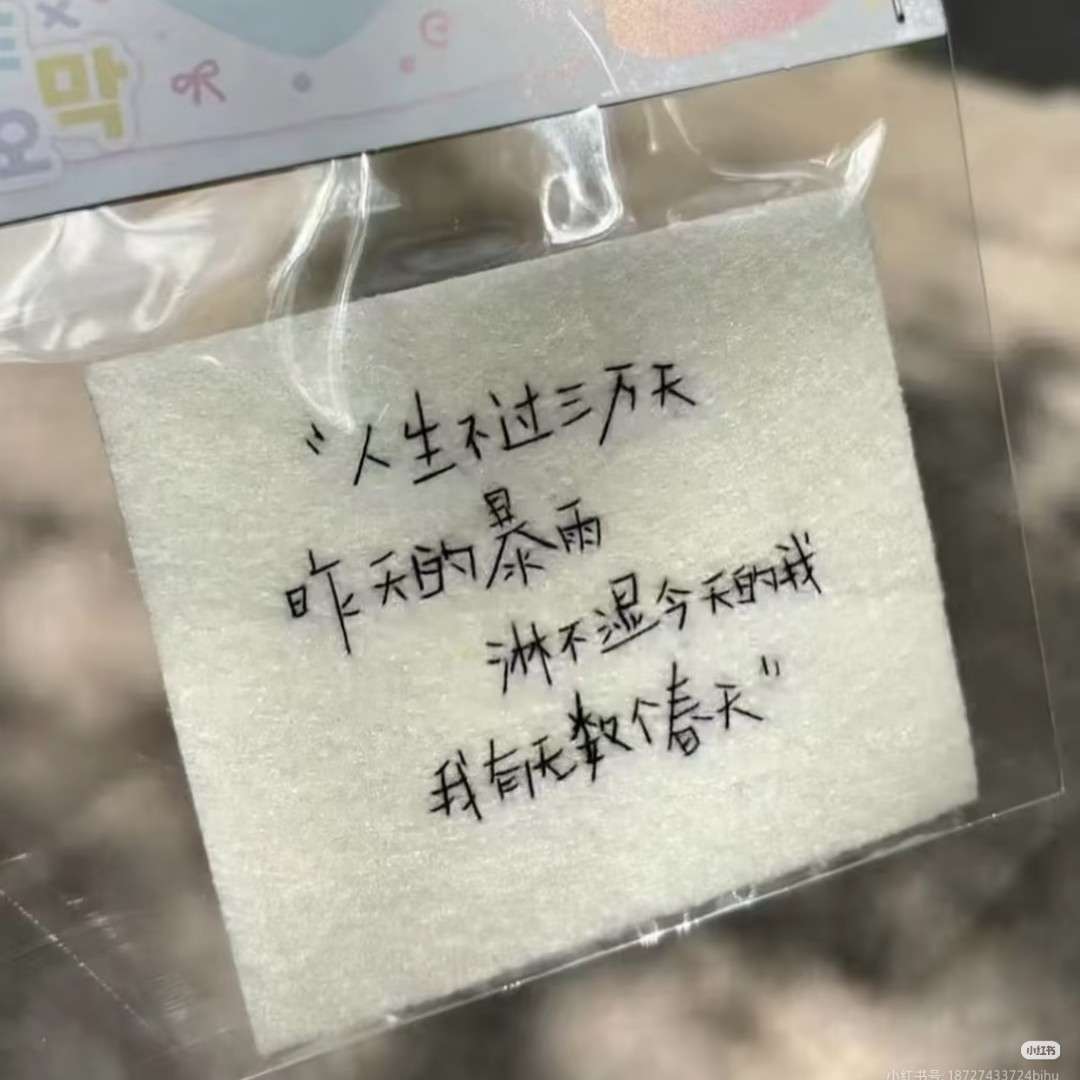 “人生不过三万天
昨天的暴雨
淋不湿今天的我
我有无数个春天”
小红书
小红书号: 18727433724bihu